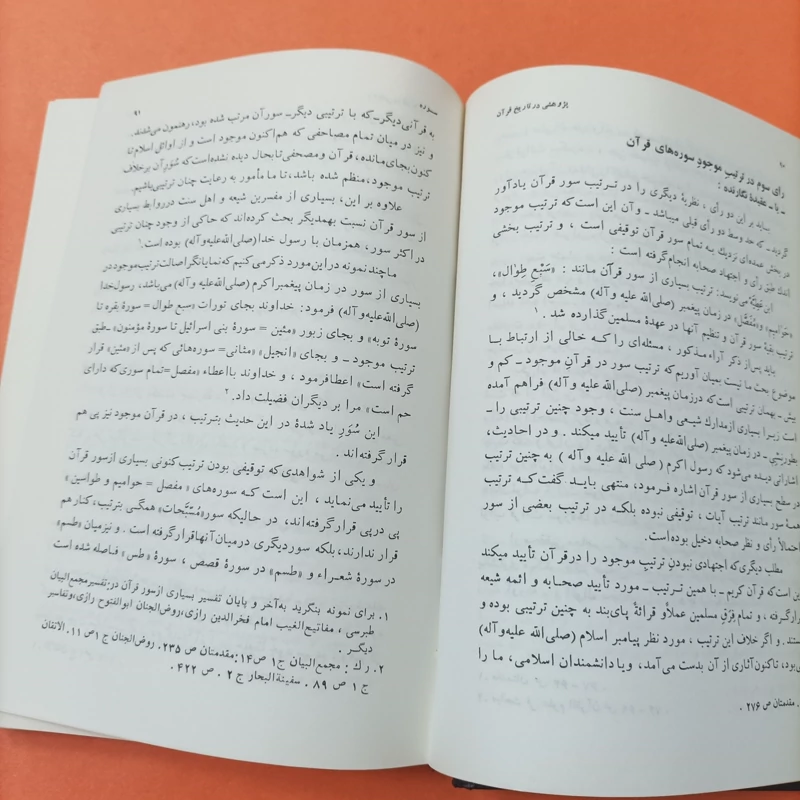 پژوهشی در تاریخ قرآن
رأی سوم در ترتیب موجود سوره‌های قرآن
ـ یا ـ عقیدهٔ نگارنده :
بنابه بر این دو رأی ، نظریهٔ دیگری را در ترتیب سور قرآن یادآور
گردید ـ که حد وسط دو رأی قبلی میباشد ـ وآن این است که ترتیب موجود
در بخش عمده‌ای نزدیک به تمام سور قرآن توقیفی است ، و ترتیب بخشی
اندک طبق رأی و اجتهاد صحابه انجام‌گرفته است :
ابن عطیّه می‌نویسد: ترتیب بسیاری از سور قرآن مانند : «سَبْع طِوال»،
«حَوامیم» و «مُفَصَّل» در زمان پیغمبر (صلی‌الله علیه و آله) مشخص گردید ، و
ترتیب بقیهٔ سور قرآن و تنظیم آنها در عهدهٔ مسلمین‌گذارده شد . ۱
باید پس‌از ذکر آراء مذکور ، مسئله‌ای را که خالی از ارتباط با
موضوع بحث ما نیست بمیان آوریم‌که ترتیب سور در قرآن موجود ـ کم و
بیش ـ بهمان ترتیبی است که درزمان پیغمبر (صلی‌الله علیه و آله) فراهم آمده
است زیرا بسیاری ازمدارك شیعی واهل سنت ، وجود چنین ترتیبی را ـ
ـ در زمان پیغمبر (صلی‌الله‌علیه و آله) تأیید میکند . و در احادیث،
اشاراتی دیده می‌شود که رسول اکرم ( صلی‌الله علیه و آله ) به چنین ترتیبی
در سطح بسیاری از سور قرآن اشاره فرمود، منتهی باید گفت‌که ترتیب
همهٔ سور مانند ترتیب آیات ، توقیفی نبوده بلکه در ترتیب بعضی از سور
احتمالاً رأی و نظر صحابه دخیل بوده‌است.
مطلب دیگری‌که اجتهادی نبودن ترتیب موجود را درقرآن تأیید میکند
این است‌که قرآن کریم ـ با همین ترتیب ـ مورد تأیید صحابه و ائمه شیعه
قرارگرفته ، و تمام فِرَقِ مسلمین عملاًو قرائةً پای‌بند به چنین ترتیبی بوده و
هستند . و اگر خلاف این ترتیب ، مورد نظر پیامبر اسلام (صلی‌الله علیه‌وآله)
می‌بود، تاکنون‌آثاری از آن بدست می‌آمد، ویادانشمندان اسلامی، ما را
مقدمتان ص ۲۷۶ .
سوره
۹۱
به قرآنی‌دیگرـ که با ترتیبی دیگرـ سورآن مرتب شده بود، رهنمون می‌شدند.
و نیز در میان تمام مصاحفی که هم‌اکنون موجود است و از اوائل اسلام تا
کنون بجای‌مانده، قرآن و مصحفی‌تابحال دیده نشده‌است‌که سُوَرآن برخلاف
ترتیب موجود، منظم شده باشد، تا ما مأمور به رعایت چنان ترتیبی‌باشیم.
علاوه بر این، بسیاری از مفسرین شیعه و اهل سنت درروابط بسیاری
از سور قرآن نسبت بهمدیگر بحث کرده‌اند که حاکی از وجود چنان ترتیبی
دراکثر سور، همزمان با رسول خدا(صلی‌الله‌علیه‌وآله) بوده است.۱
ماچند نمونه دراین‌مورد ذکرمی‌کنیم که نمایانگراصالت‌ترتیب‌موجوددر
بسیاری از سور در زمان پیغمبراکرم (صلی‌الله علیه‌وآله) می‌باشد، رسول‌خدا
(صلی‌الله‌علیه‌وآله) فرمود: خداوند بجای تورات «سبع طوال = سورهٔ بقره تا
سورهٔ توبه» و بجای زبور «مئین = سورهٔ بنی اسرائیل تا سورهٔ مؤمنون» ـطبق
ترتیب موجود ـ و بجای «انجیل» «مثانی= سوره‌هائی که پس از «مئین» قرار
گرفته است» اعطافرمود ، و خداوند بااعطاء «مفصل=تمام سوری‌که دارای
حم است» مرا بر دیگران فضیلت داد.۲
این سُوَرِ یاد شدهٔ در این حدیث بترتیب ، در قرآن موجود نیز پی هم
قرارگرفته‌اند .
و یکی از شواهدی‌که توقیفی بودن ترتیب‌کنونی بسیاری ازسور قرآن
را تأیید می‌نماید ، این است که سوره‌های « مفصل = حوامیم و طواسین »
پی درپی قرارگرفته‌اند، در حالیکه سور«مُسَبِّحات» همگی بترتیب، کنار هم
قرار ندارند، بلکه سوردیگری درمیان‌آنهاقرارگرفته است . و نیزمیان «طسم»
در سورهٔ شعراء و «طسم» در سورهٔ قصص ، سورهٔ «طس» فاصله شده است
۱. برای نمونه بنگرید به‌آخر و پایان تفسیر بسیاری ازسور قرآن در: تفسیر مجمع‌البیان
طبرسی ، مفاتیح‌الغیب امام فخرالدین رازی، روض‌الجنان ابوالفتوح رازی، وتفاسیر
دیگر .
۲. رك : مجمع‌البیان ج۱ ص۱۴؛ مقدمتان ص ۲۳۵. روض‌الجنان ج ۱ص ۱۱، الاتقان
ج ۱ ص ۸۹ . سفینةالبحار ج ۲ . ص ۴۲۲ .